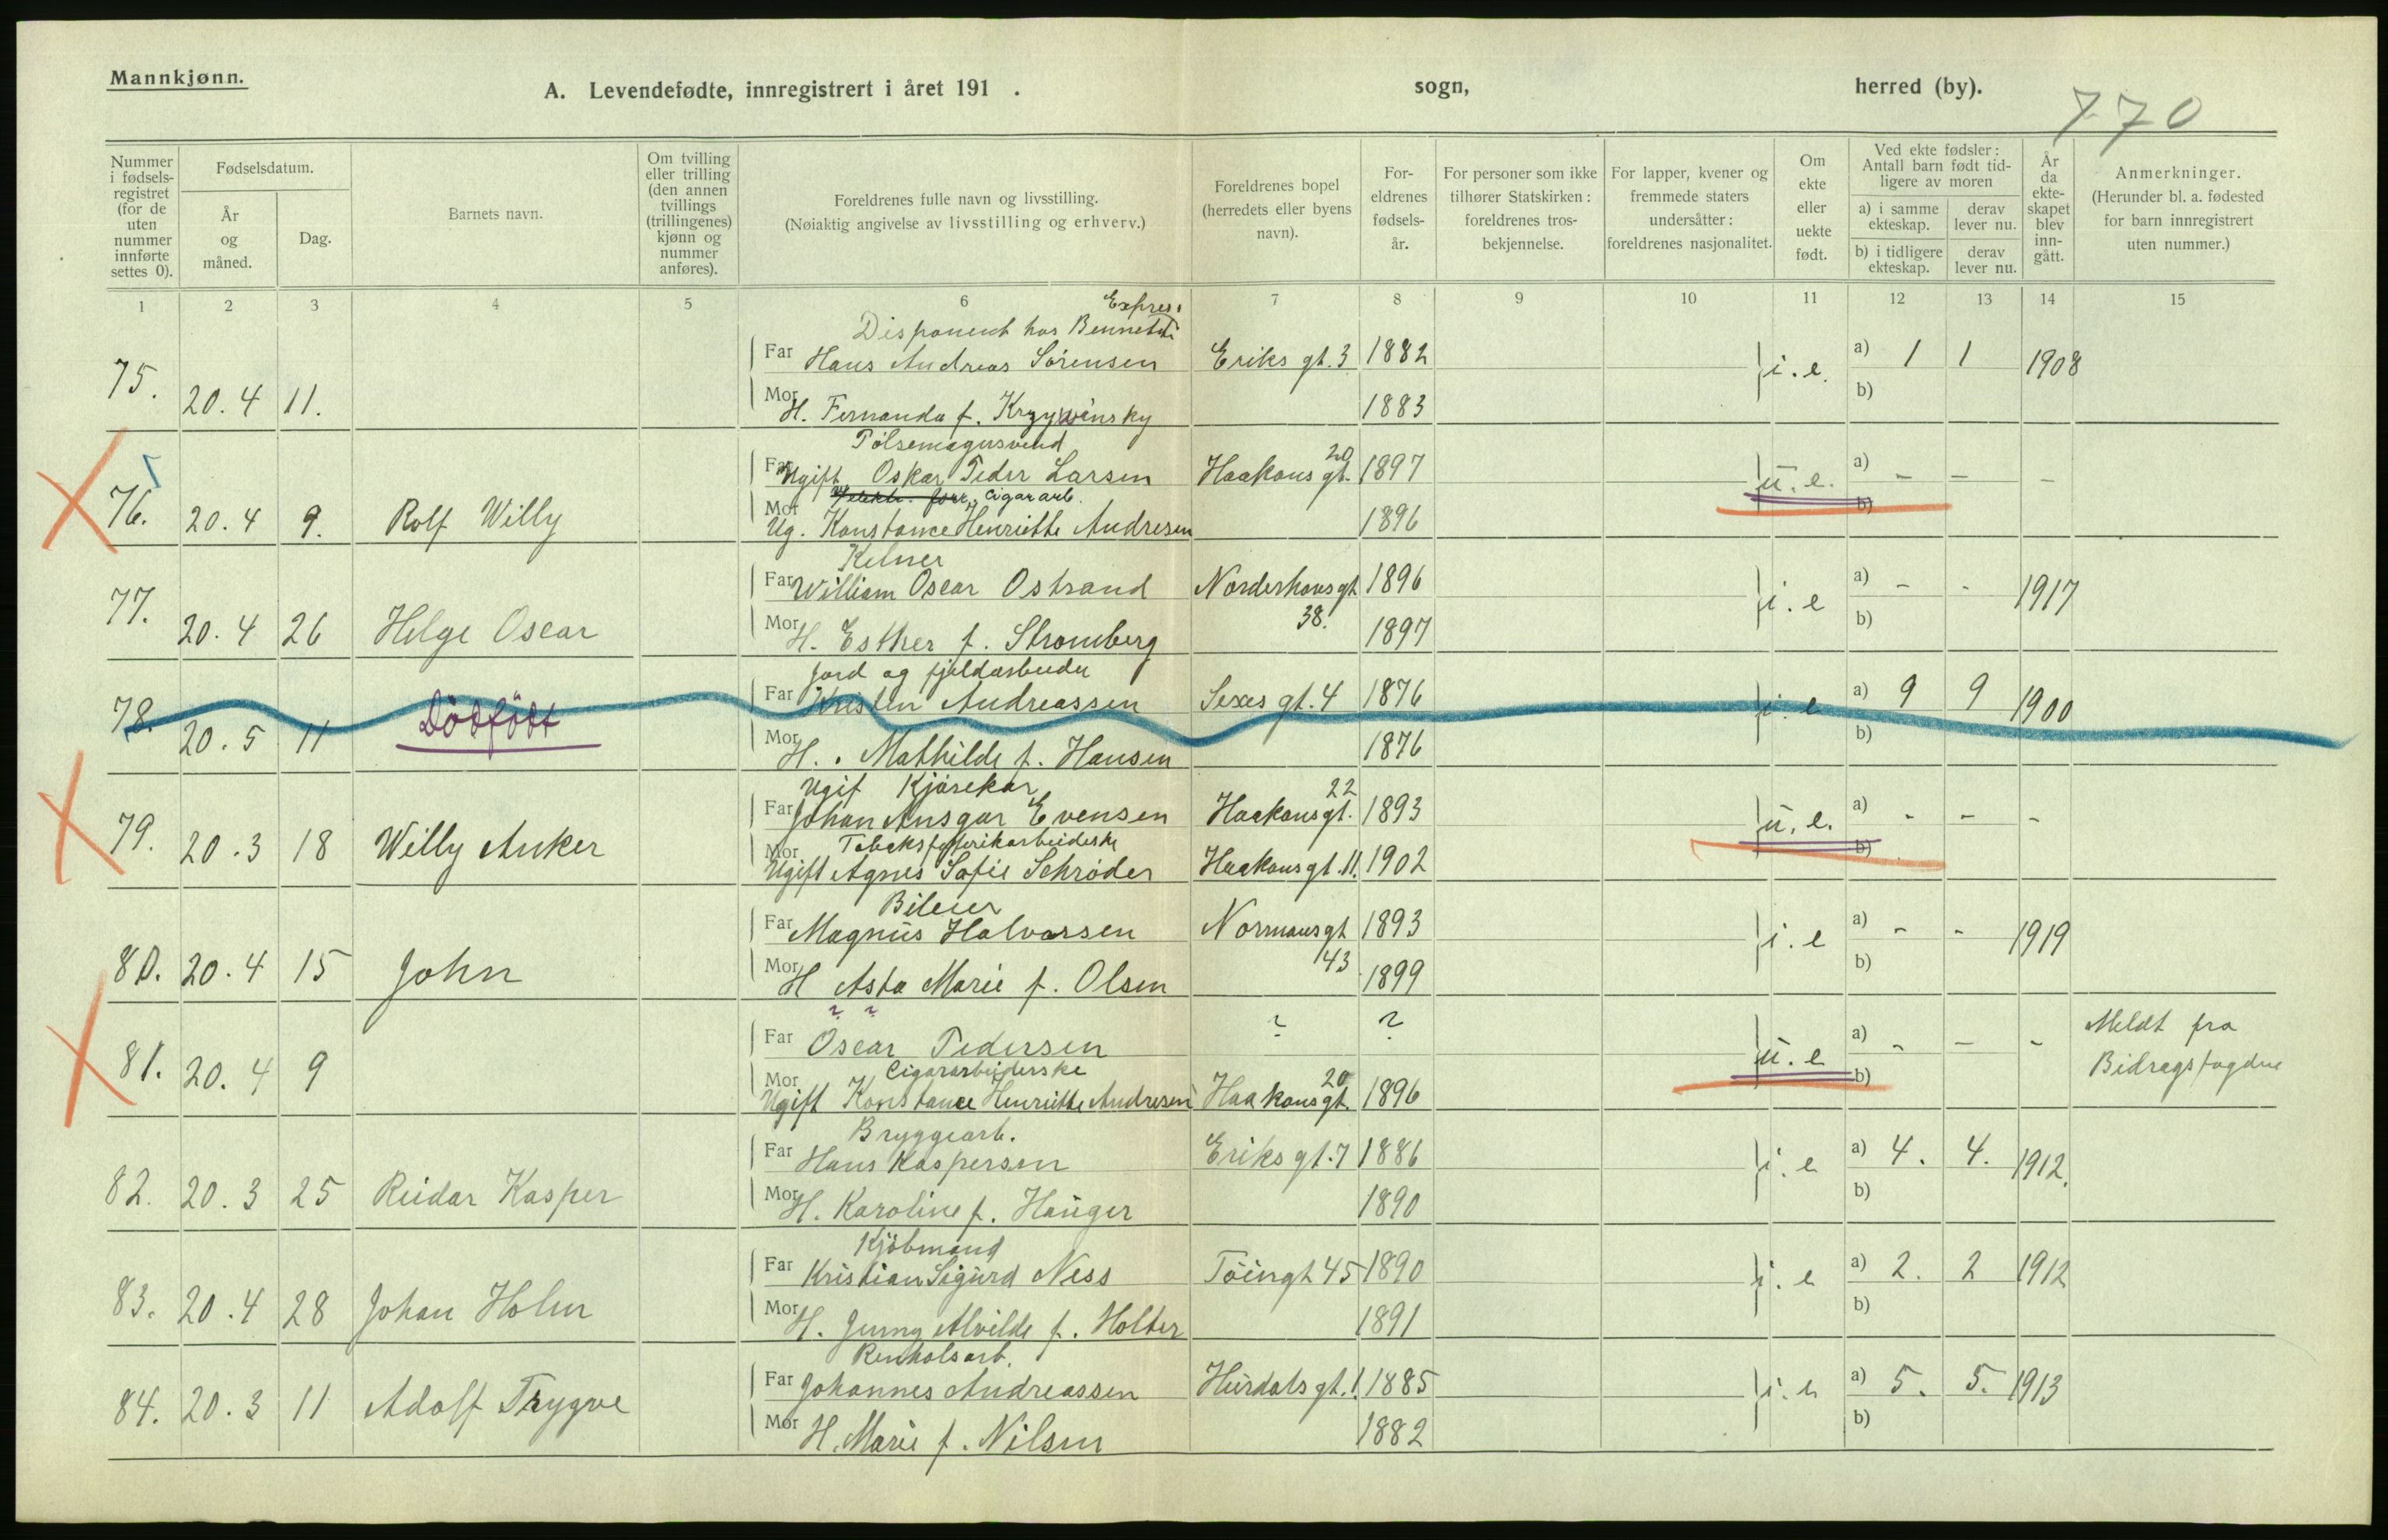 Mannkjønn.
A. Levendefødte, innregistrert i året 191 .
sogn,
herred (by).
770
Nummer i fødsels-registret (for de uten nummer innførte settes 0).
Fødselsdatum.
År og måned.
Dag.
Barnets navn.
Om tvilling eller trilling (den annen tvillings (trillingenes) kjønn og nummer anføres).
Foreldrenes fulle navn og livsstilling.
(Nøiaktig angivelse av livsstilling og erhverv.)
Foreldrenes bopel (herredets eller byens navn).
For-eldrenes fødsels-år.
For personer som ikke tilhører Statskirken: foreldrenes tros-bekjennelse.
For lapper, kvener og fremmede staters undersåtter: foreldrenes nasjonalitet.
Om ekte eller uekte født.
Ved ekte fødsler: Antall barn født tid-ligere av moren
a) i samme ekteskap.
derav lever nu.
b) i tidligere ekteskap.
derav lever nu.
År da ekte-skapet blev inn-gått.
Anmerkninger.
(Herunder bl. a. fødested for barn innregistrert uten nummer.)
1 2 3 4 5 6 7 8 9 10 11 12 13 14 15
Expres.
Disponent hos Bennetts
75. 20.4 11. Far Hans Andreas Sörensen Eriks gt. 3 1882 i.e. a) 1 1 1908
Mor H. Fernanda f. Krzywinsky 1883 b)
Pölsemagersvend
76. 20.4 9. Rolf Willy Far Ugift Oskar Peder Larsen Haakons gt. 20 1897 u.e. a) - - -
Cigararb.
Mor Ug. Konstance Henriette Andresen 1896 b)
Kelner
77. 20.4 26 Helge Oscar Far William Oscar Ostrand Norderhovsgt 38. 1896 i.e a) - - 1917
Mor H. Esther f. Stromberg 1897 b)
Jord og fjeldarbeider
78. 20.5 11 Dödfödt Far Kristen Andreassen Sexes gt. 4 1876 i.e a) 9 9 1900
Mor H. Mathilde f. Hansen 1876 b)
Ugif Kjörekar
79. 20.3 18 Willy Anker Far Johan Ansgar Evensen Haakonsgt. 22 1893 u.e. a) - - -
Tobaksfabrikarbeiderske
Mor Ugift Agnes Sofie Schröder Haakonsgt. 11. 1902 b)
Bileier
80. 20.4 15 John Far Magnus Halvorsen Normansgt 43 1893 i.e a) - - 1919
Mor H Asta Marie f. Olsen 1899 b)
? ?
81. 20.4 9 Far Oscar Pedersen ? ? u.e a) - - - Meldt fra
Cigararbeiderske
Mor Ugift Konstance Henriette Andresen Haakonsgt. 20 1896 b) Bidragsfogden
Bryggearb.
82. 20.3 25 Reidar Kasper Far Hans Kaspersen Eriks gt. 7 1886 i.e a) 4. 4. 1912.
Mor H. Karoline f. Hauger 1890 b)
Kjöbmand
83. 20.4 28 Johan Holm Far Kristian Sigurd Ness Töingt 45 1890 i.e a) 2. 2 1912
Mor H. Jenny Alvilde f. Holter 1891 b)
Renholsarb.
84. 20.3 11 Adolf Trygve Far Johannes Andreassen Hurdals gt. 1. 1885 i.e a) 5. 5. 1913
Mor H. Marie f. Nilsen 1882 b)